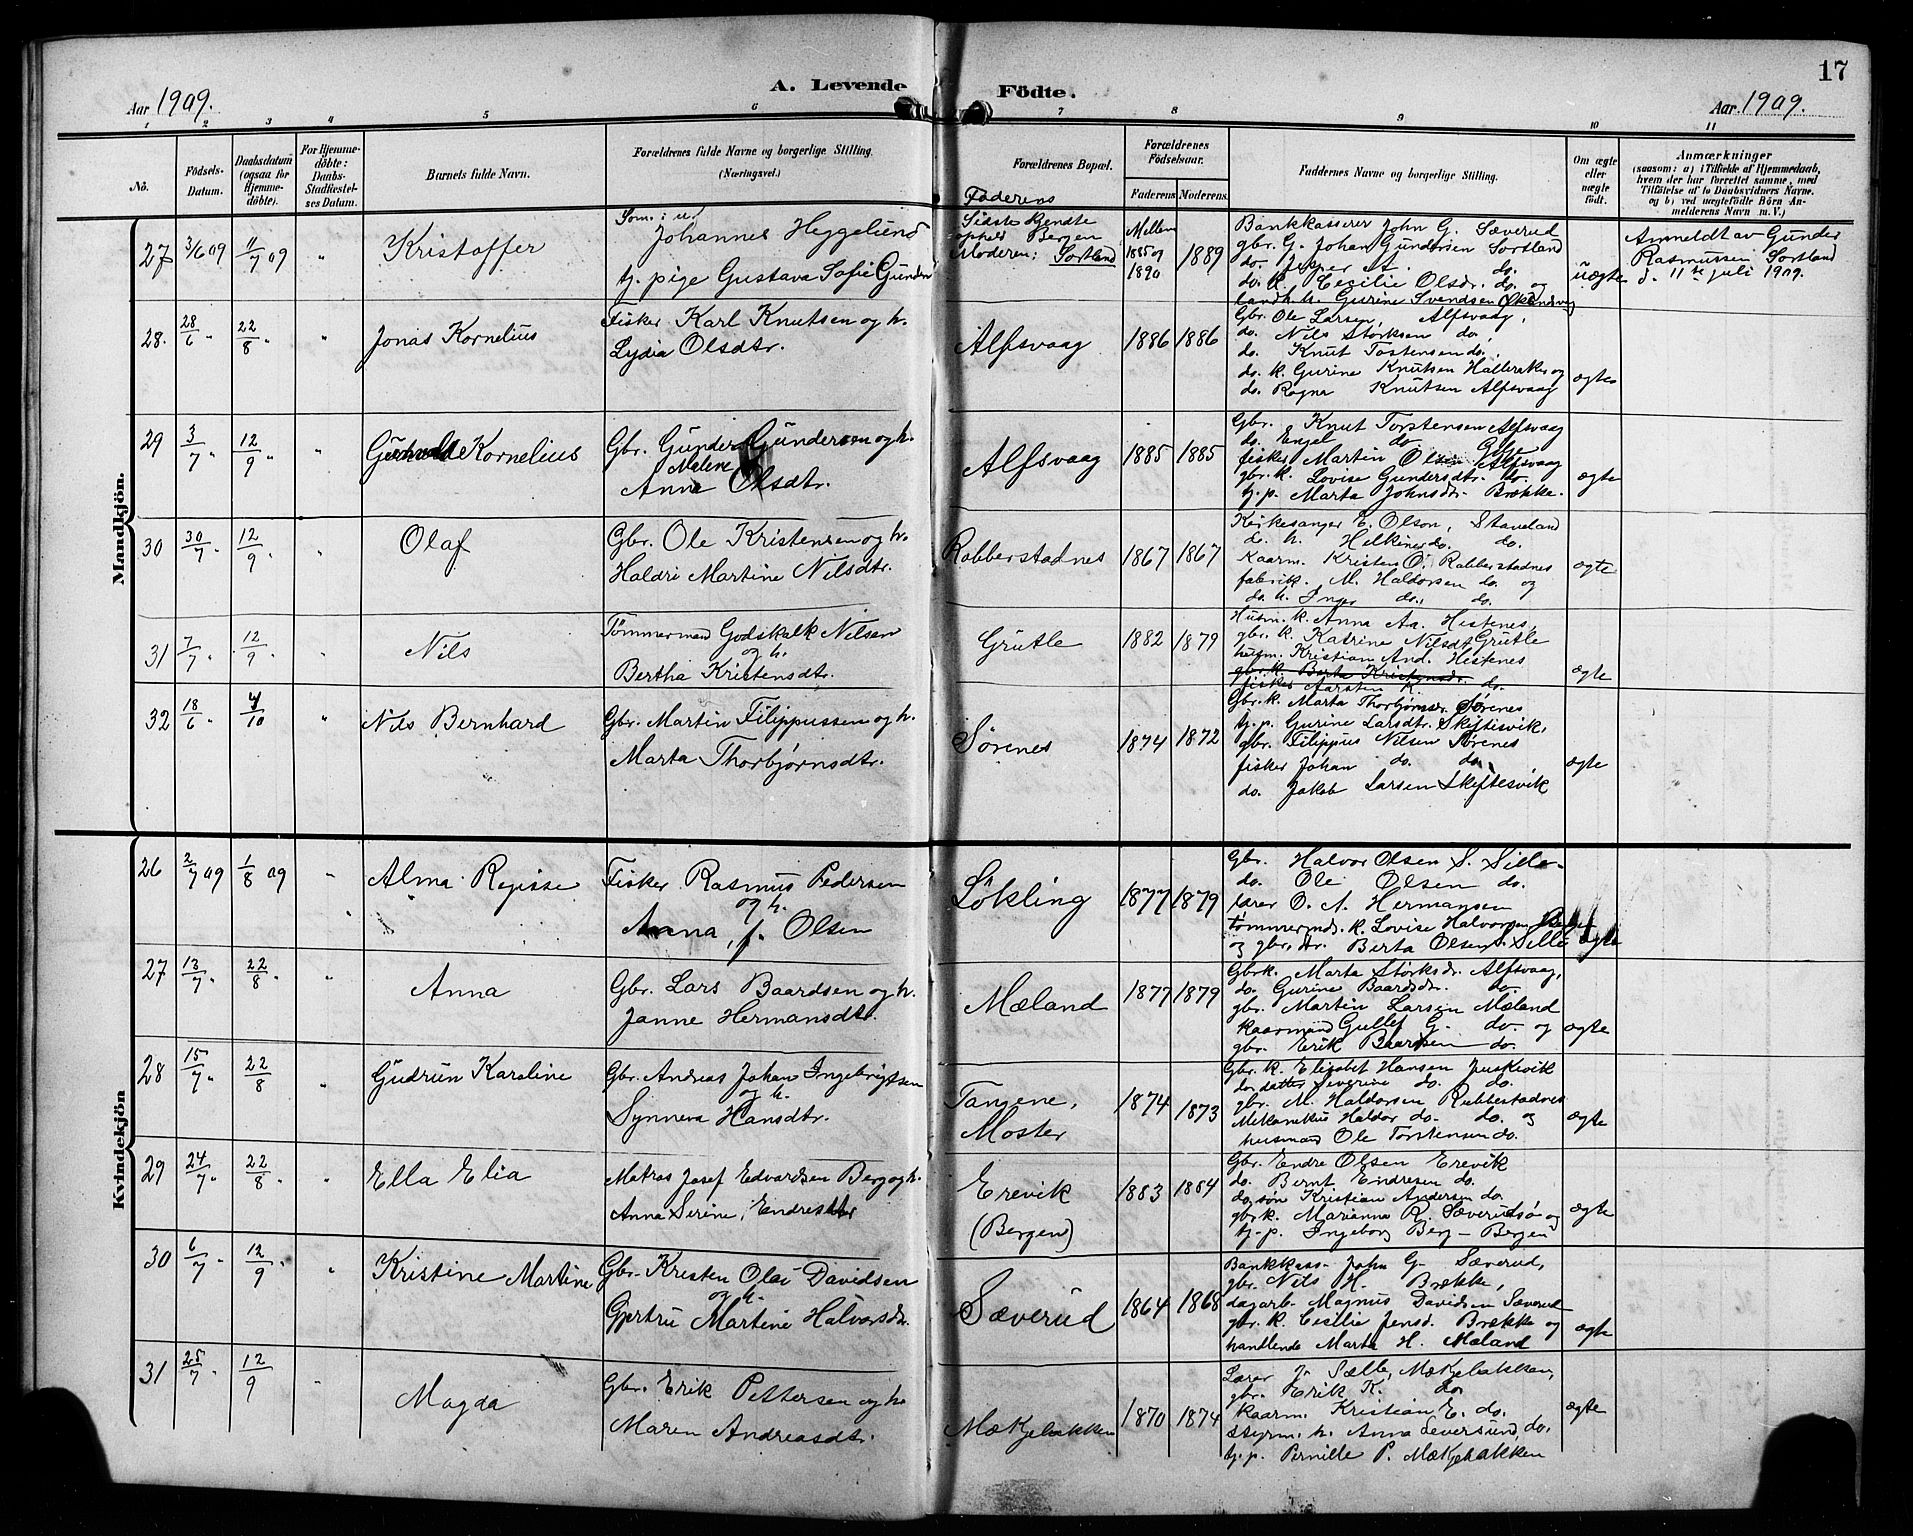 17
Aar 1909.
A. Levende Födte.
Aar 1909.
1 2 3 4 5 6 7 8 9 10 11
No.
Födsels-Datum.
Daabsdatum (ogsaa for Hjemme-döbte).
For Hjemme-döbte: Daabs-Stadfæstel-ses Datum.
Barnets fulde Navn.
Forældrenes fulde Navne og borgerlige Stilling.
(Næringsvei.)
Forældrenes Bopæl.
Forældrenes Födselsaar.
Faderens Moderens
Faddernes Navne og borgerlige Stilling.
Om ægte eller uægte födt.
Anmærkninger
(saasom: a) i Tilfælde af Hjemmedaab, hvem der har forrettet samme, med Tilföielse af to Daabsvidners Navne, og b) ved uægtefödte Börn An-melderens Navn m. V.)
Mandkjön.
27 3/6 09 11/7 09 " Kristoffer
Som: u.f. Johannes Heggelund
tj. pige Gustava Sofie Gundersd
Faderens Sidste kjendte opphold Bergen
Moderen: Sortland
Mellem 1885 og 1890 1889
Bankkasserer John G. Sæverud
gbr. G. Johan Gundersen Sortland
do. Jesper A. do.
do. k. Cecilie Olsdr. do. og
landh. h. Gurine Svendsen
uægte
Anmeldt av Gunder
Rasmussen Sortland
d. 11te juli 1909.
28. 28/6 " 22/8 " " Jonas Kornelius
Fisker Karl Knutsen og h.
Lydia Olsdtr.
Alfsvaag 1886 1886
Gbr. Ole Larsen, Alfsvaag,
do. Nils Størksen do.
do. Knut Tostensen do.,
do. k. Gurine Knutsen Halleraker og
do. Ragna Knutsen Alfsvaag
ægte
29 3/7 " 12/9 " " Kornelius
Gbr. Gunder Gundersen og h.
Malene
Anna Olsdtr.
Alfsvaag 1885 1885
Gbr. Knut Torstensen Alfsvaag
do. Engel do
fisker Martin Olsen
gbr. k. Lovise Gundersdtr. do.
tj. p. Marta Johnsdr. Brække.
ægte
30 30/7 " 12/9 " Olaf
Gbr. Ole Kristensen og h.
Haldri Martine Nilsdtr.
Rabberstadnes 1867 1867
Kirkesanger E. Olson, Staveland
do. h. do. do.
Kaarm. Kristen O. Rabberstadnes
fabrik. M. Haldorsen do. og
do. h. Inger do. do.
ægte
31 7/7 " 12/9 " " Nils
Tømmermand Godskalk Nilsen
og h.
Bertha Kristensdtr.
Grutle 1882 1879
Husm. k. Anna Aa. Hestenes,
gbr. k. Katrine Nilsdt Grutle
husm. Kristian And. Hestenes
gbr. k. Berta Kristensdr.
fisker Karsten K. do.
ægte
32 18/6 " 4/10 " Nils Bernhard
Gbr. Martin Filippussen og h.
Marta Thorbjørnsdtr.
Sørenes 1874 1872
Gbr. k. Marta Thorbjørnsdr. Sørenes
tj. p. Gurine Larsdtr. Skiftisvik,
gbr. Filippus Nilsen Sørenes
fisker Johan do. do.
do. Jakob Larsen Skiftesvik
ægte
Kvindekjön
26 2/7 09 1/8 09 " Alma Regisse
Fisker Rasmus Pedersen
og h.
Anna, f. Olsen
Løkling 1877 1879
Gbr. Halvor Olsen S. Sille
do. Ole Olsen do.
lærer O. A. Hermansen
tømmermds. k. Lovise Halvorsen
og gbr. dtr. Berta Olsen S. Sille
ægte
27 13/7 " 22/8 " " Anna
Gbr. Lars Baardsen og h.
Janne Hermansdtr.
Mæland 1877 1879
Gbrk. Marta Størksdr. Alfsvaag,
do. Gurine Baardsdr. do.
gbr. Martin Larsen Mæland
kaarmand Gullef G. do. og
gbr. Erik Baardsen do.
ægte
28 15/7 " 22/8 " Gudrun Karoline
Gbr. Andreas Johan Ingebrigtsen
og h.
Synneva Hansdtr.
Tangene, Moster 1874 1873
Gbr. k. Elisabet Hansen
do. datter Severine do. do.
gbr. M. Haldorsen Rubbestadnes
Mekanikus Haldor do. do. og
husmand Ole Torstensen do.
ægte
29 24/7 " 22/8 " " Ella Elia
Matros Josef Edvardsen Berg og h.
Anna Serine, Endresdtr
Erevik
(Bergen)
1883 1884
Gbr. Endre Olsen Erevik
do. Bernt Endresen do.
do. søn Kristian Andersen do.
gbr. k. Marianna R. Sæverudsø og
tj. p. Ingeborg Berg - Bergen
ægte
30 6/7 " 12/9 " " Kristine Martine
Gbr. Kristen Olai Davidsen
og h.
Gjertru Martine Halvorsdr.
Sæverud 1864 1868
Bankkass. John G. Sæverud,
gbr. Nils H. Brække,
dagarb. Magnus Davidsen Sæverud
gbr. k. Cecilie Jensd. Brække og
handlende Marta H. Mæland
ægte
31 25/7 12/9 " Magda
Gbr. Erik Pettersen og h.
Maren Andreasdtr.
Mækjebakken 1870 1874
Lærer J. Sælle, Mækjebakken,
gbr. Erik K. do.
kaarm. Kristian E. do.
Styrm. h. Anna Leversund, do.
tj. p. Pernille P. Mækjebakken
ægte